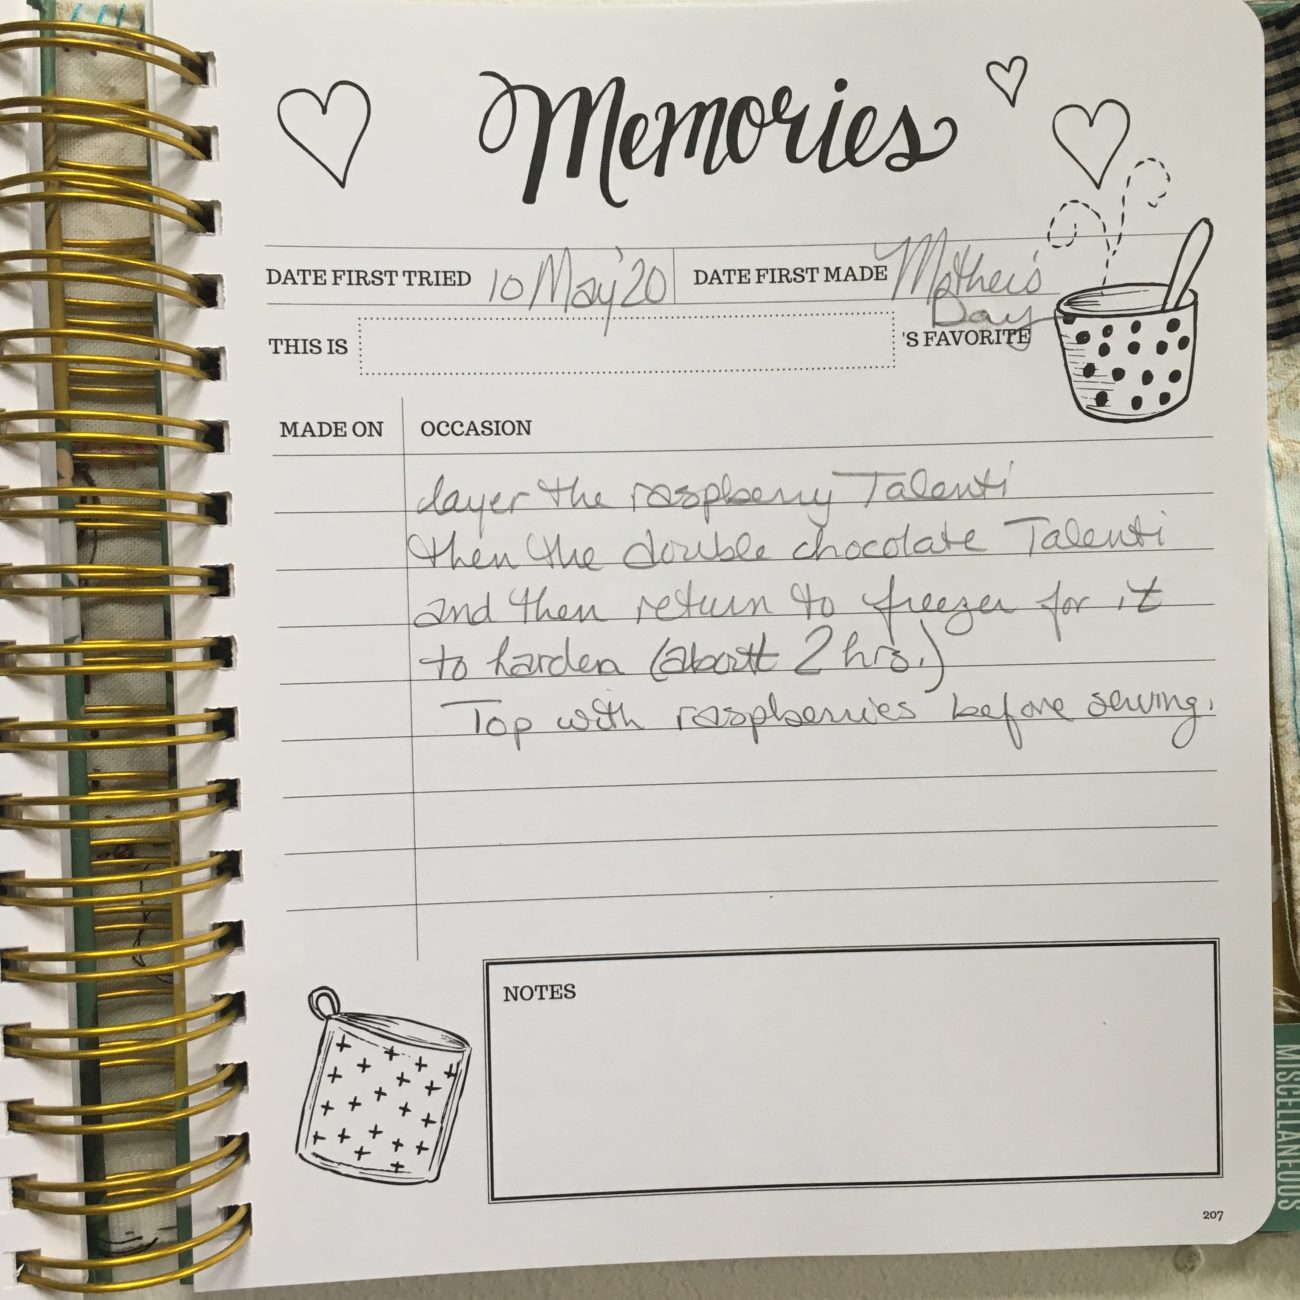 Memories
DATE FIRST TRIED 10 May '20 DATE FIRST MADE Mother's
Day
THIS IS 'S FAVORITE
MADE ON OCCASION
layer the raspberry Talenti
then the double chocolate Talenti
and then return to freezer for it
to harden (about 2 hrs.)
Top with raspberries before serving.
NOTES
MISCELLANEOUS
207